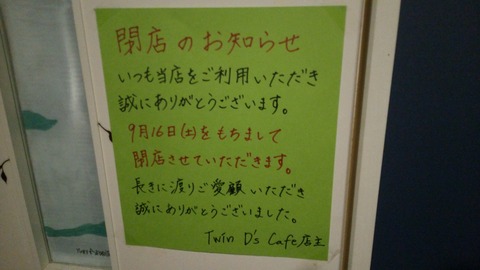 閉店のお知らせ
いつも当店をご利用いただき
誠にありがとうございます。
9月16日(土)をもちまして
閉店させていただきます。
長きに渡りご愛顧いただき
誠にありがとうございました。
Twin D's Cafe店主